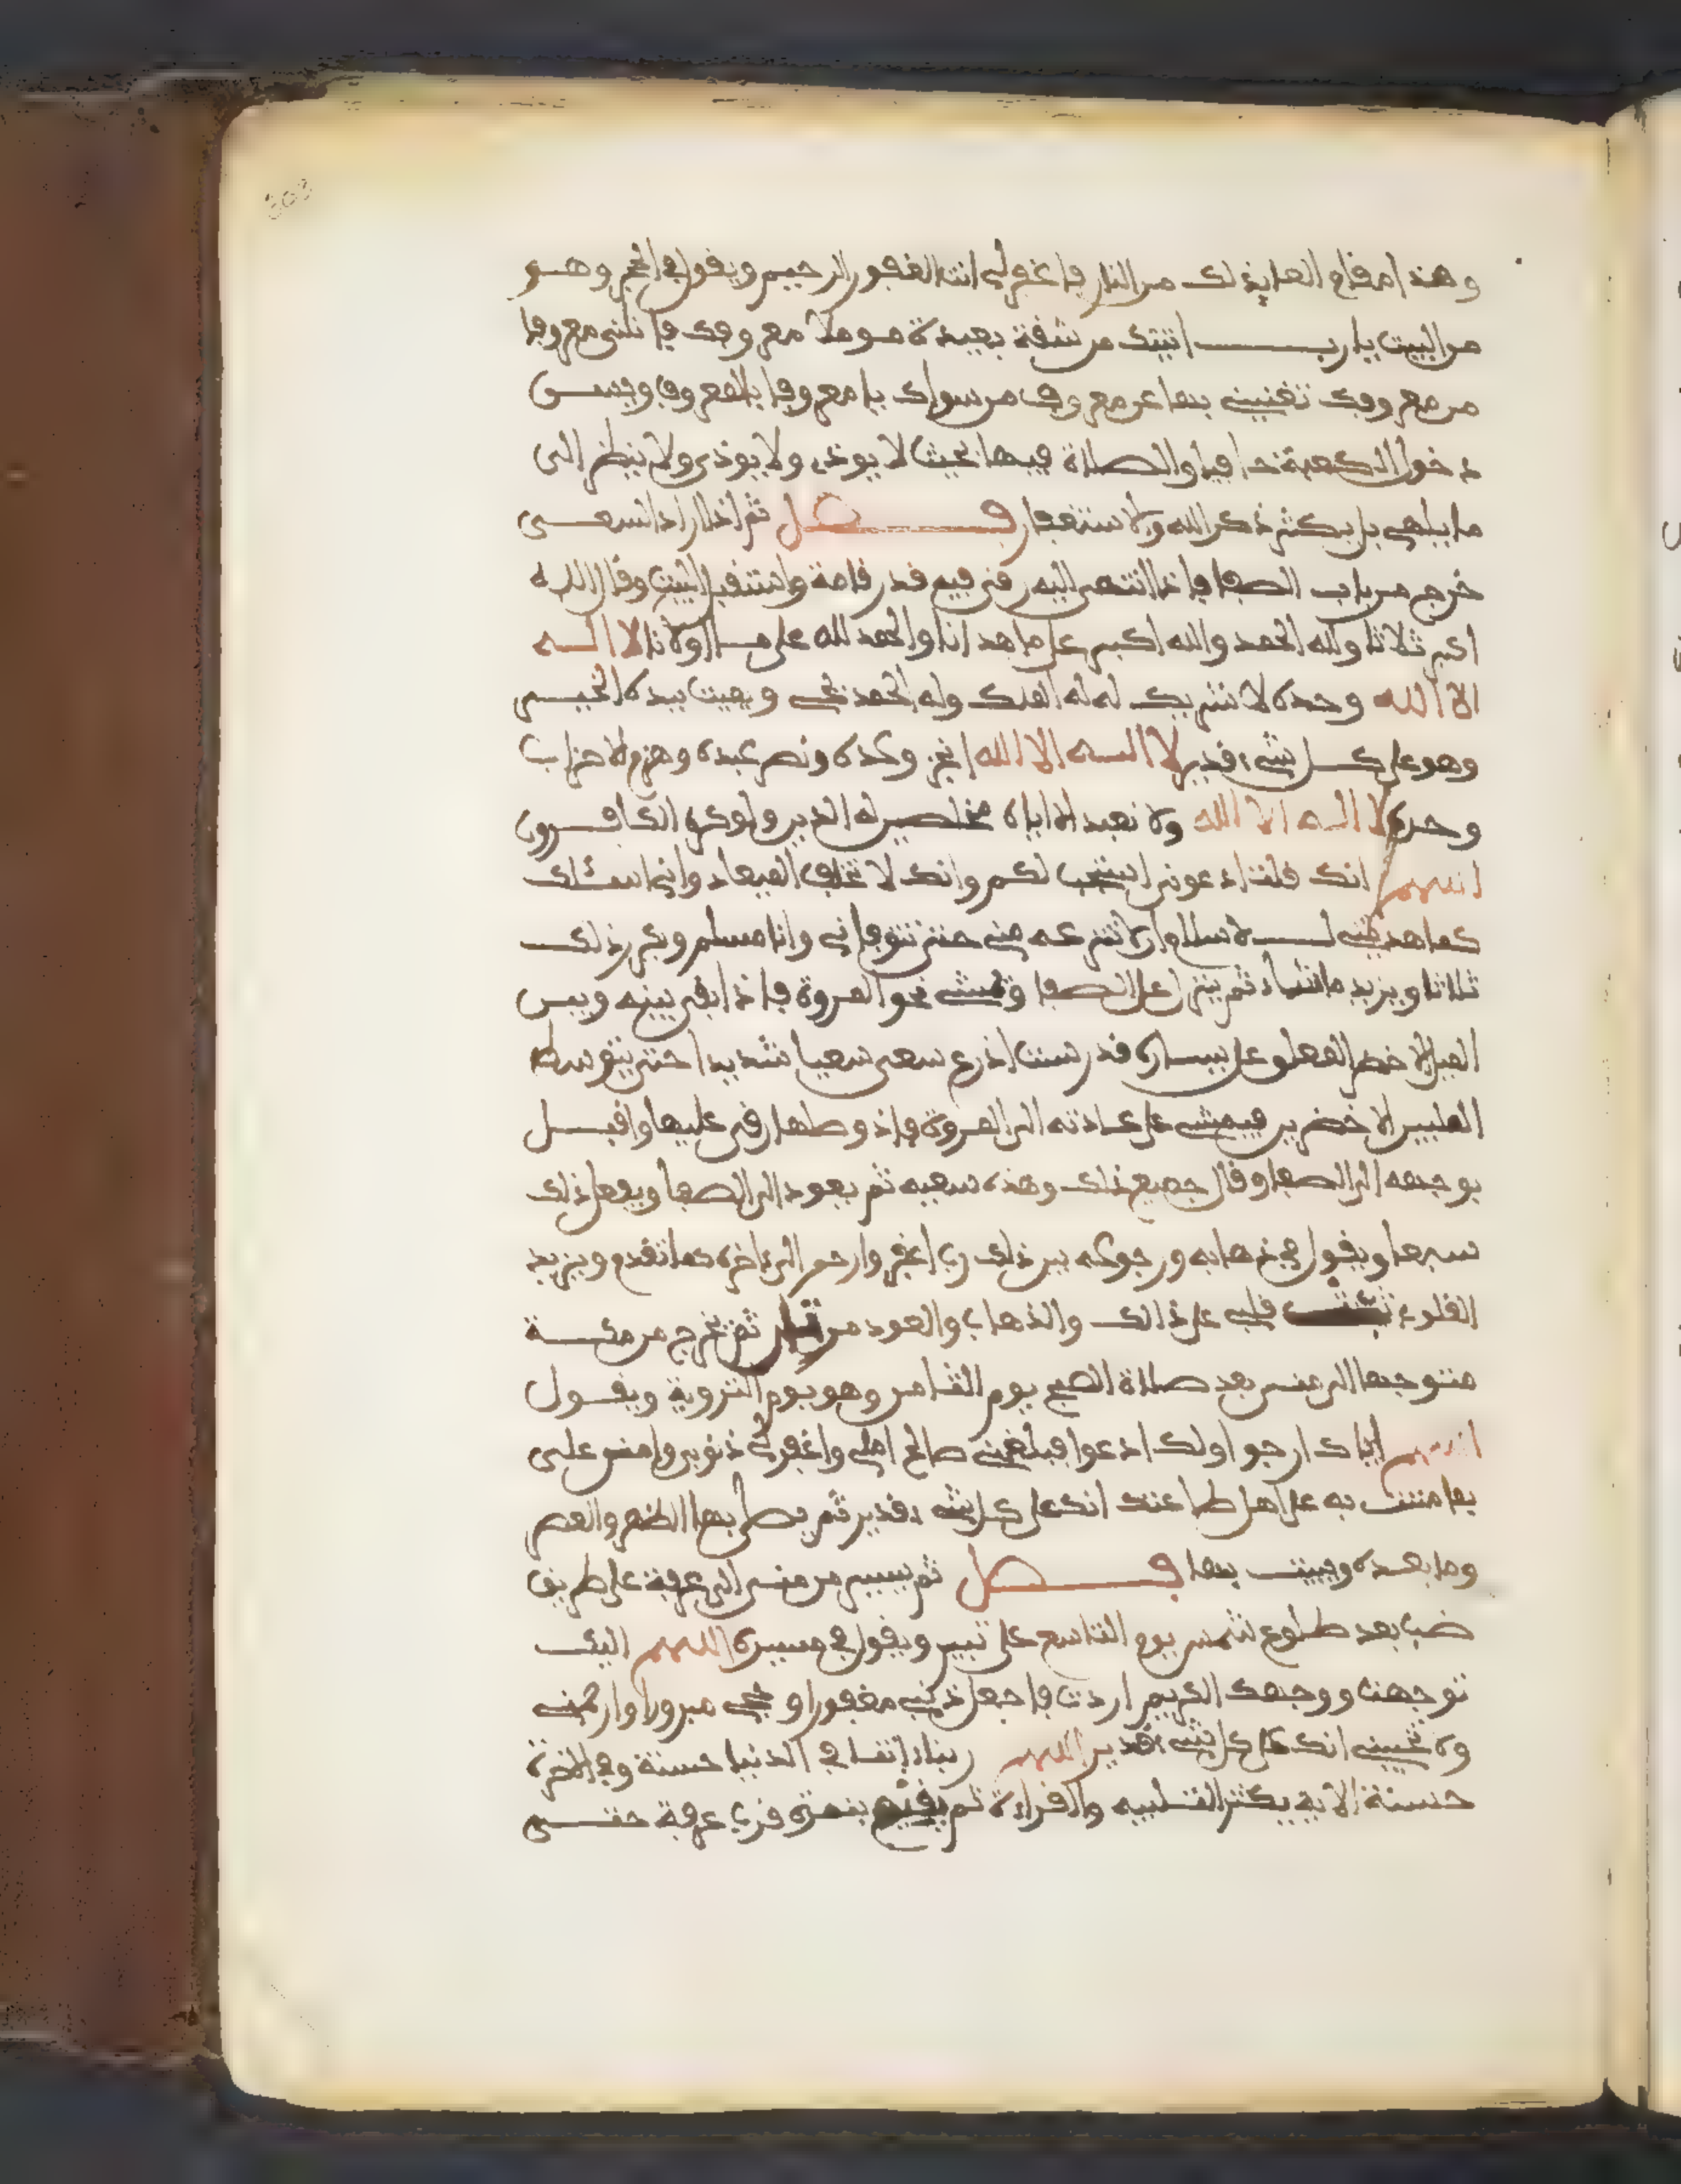 وهذا مقام العايذ لك من النار فاغفر لي انت الغفور الرحيم ويقول في الحجر وهو
من البيت يا رب اتيتك من شقة بعيدة موملا معروفك فانلني معروفا
من معروفك تغنيني بها عن معروف من سواك يا معروفا بالمعروف ويسن
دخول الكعبة حافيا والصلاة فيها بحيث لا يوذي ولا يوذى ولا ينظر الى
ما يلهي بل يكثر ذكر الله والاستغفار فصل ثم اذا اراد السعي
خرج من باب الصفا فاذا انتهى اليه رقى فيه قدر قامة واستقبل البيت وقال الله
اكبر ثلاثا ولله الحمد والله اكبر على ما هدانا والحمد لله على ما اولانا لا اله
الا الله وحده لا شريك له له الملك وله الحمد يحي ويميت بيده الخير
وهو على كل شيء قدير لا اله الا الله انجز وعده ونصر عبده وهزم الاحزاب
وحده لا اله الا الله ولا نعبد الا اياه مخلصين له الدين ولو كره الكافرون
اللهم انك قلت ادعوني استجب لكم وانك لا تخلف الميعاد واني اسئلك
كما هديتني للاسلام ان لا تنزعه مني حتى تتوفاني وانا مسلم ويكرر ذلك
ثلاثا ويزيد ما شاء ثم ينزل على الصفا ويمشي نحو المروة فاذا بقي بينه وبين
الميل الاخضر المعلق على يساره قدر ست اذرع سعى سعيا شديدا حتى يتوسط
الميلين الاخضرين فيمشي على عادته الى المروة فاذا وصلها رقى عليها واقبل
بوجهه الى الصفا وقال جميع ذلك وهذه سعيه ثم يعود الى الصفا ويفعل ذلك
سبعا ويقول في ذهابه ورجوعه بين ذلك رب اغفر وارحم الى ءاخره كما تقدم ويزيد
قلبي على ذالك والذهاب والعود ثم يخرج من مكة
متوجها الى منى بعد صلاة الصبح يوم الثامن وهو يوم التروية ويقول
اللهم اياك ارجوا ولك ادعوا فبلغني صالح املي واغفر لي ذنوبي وامنن علي
بما مننت به على اهل طاعتك انك على كل شيء قدير ثم يصلي بها الظهر والعصر
وما بعده ويبيت بها فصل ثم يسير من منى الى عرفة على طريق
ضب بعد طلوع شمس يوم التاسع على ثبير ويقول في مسيره اللهم اليك
توجهت ووجهك الكريم اردت فاجعل ذنبي مغفورا وحجي مبرورا وارحمني
ولا تخيبني انك على كل شيء قدير اللهم ربنا ءاتنا في الدنيا حسنة وفي الاخرة
حسنة الاية يكثر التلبيه والقراءة ثم يقيم بنمرة قرب عرفة حتى